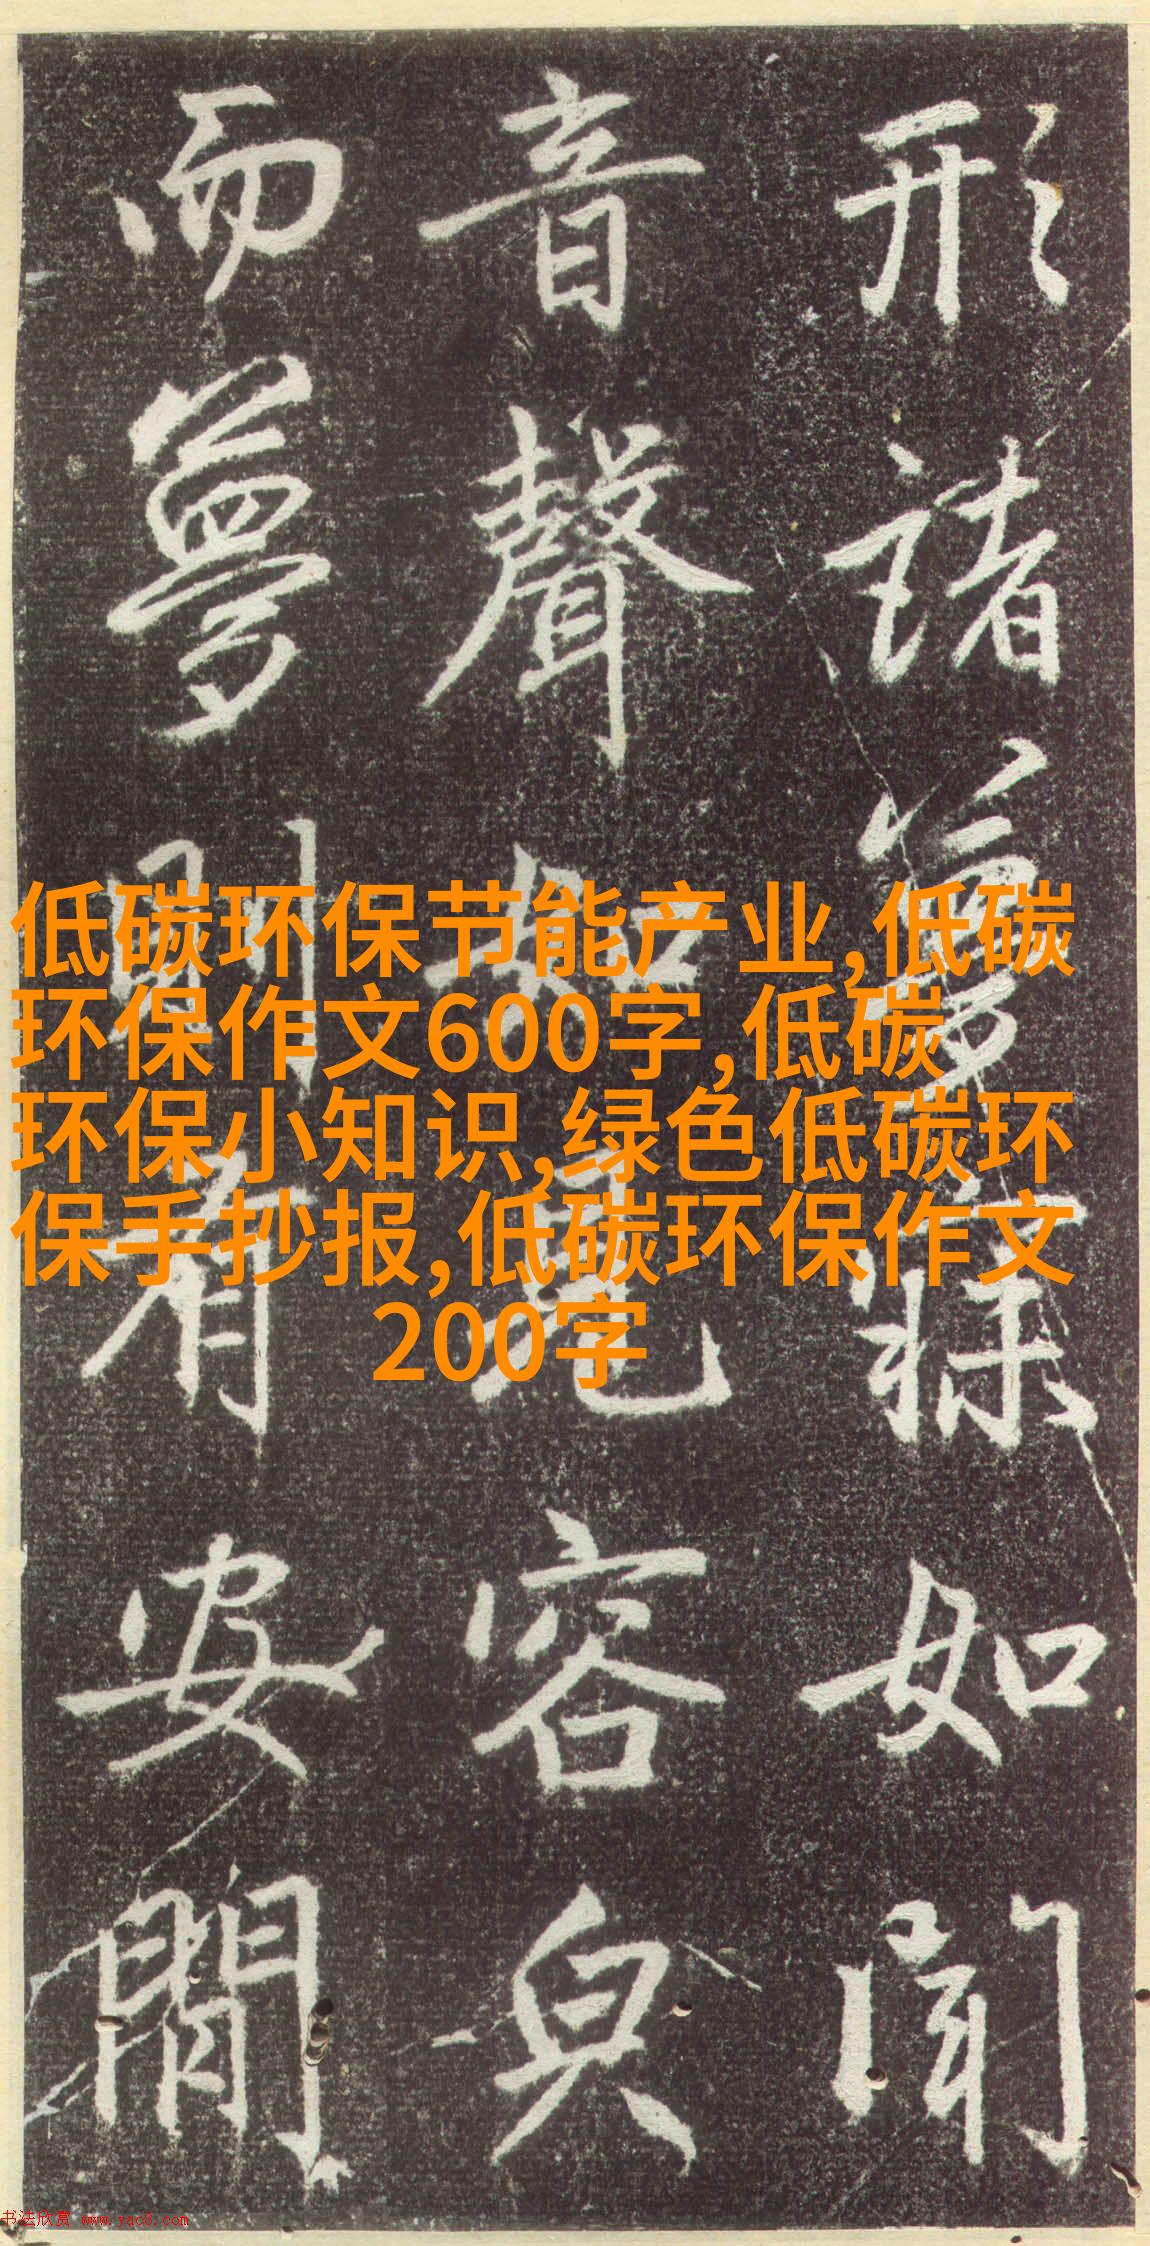 形諸夢寐如聞
音聲如見容皃
而夢有安閒
低碳环保节能产业,低碳
环保作文600字,低碳
环保小知识,绿色低碳环
保手抄报,低碳环保作文
200字
书法欣赏 www.yac8.com